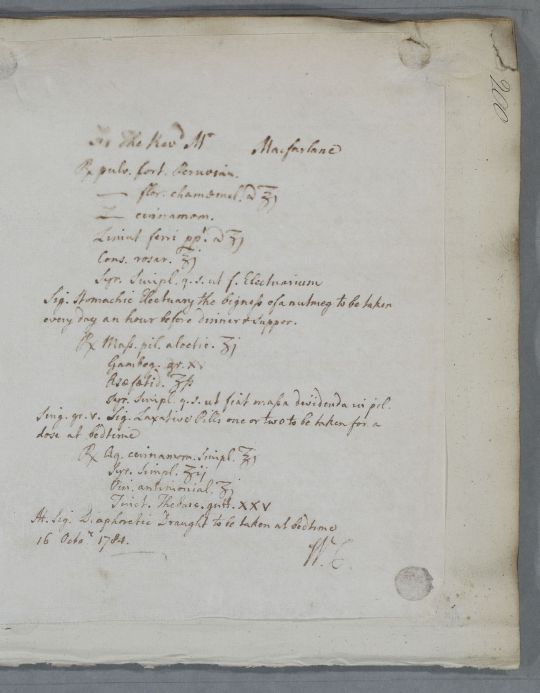 For The Revd Mr Macfarlane
℞ pulv. Cort. Peruvian.
— flor. chamæmel. a ʒj
— cinnamom.
Limat ferri ppt. a ʒj
Cons. rosar. ℥j
Syr. Simpl. q.s. ut f. Electuarium
Sig. Stomachic Electuary the bigness of a nutmeg to be taken
every day an hour before dinner & supper.
℞ Mass. pil. aloetic. ʒj
Gambog. gr. x
Asafœtid. ʒſs
Syr. Simpl. q.s. ut fiat maſsa dividenda in pil.
Sing. gr. v. Sig. Laxative Pills one or two to be taken for a
dose at bedtime
℞ Aq. cinnamom. Simpl. ℥j
Syr. Simpl. ʒij
Vin. antimonial. ʒj
Tinct. Thebaic. gutt. XXV
M. Sig. Diaphoretic Draught to be taken at bedtime
16 Octor. 1784.
W. C.